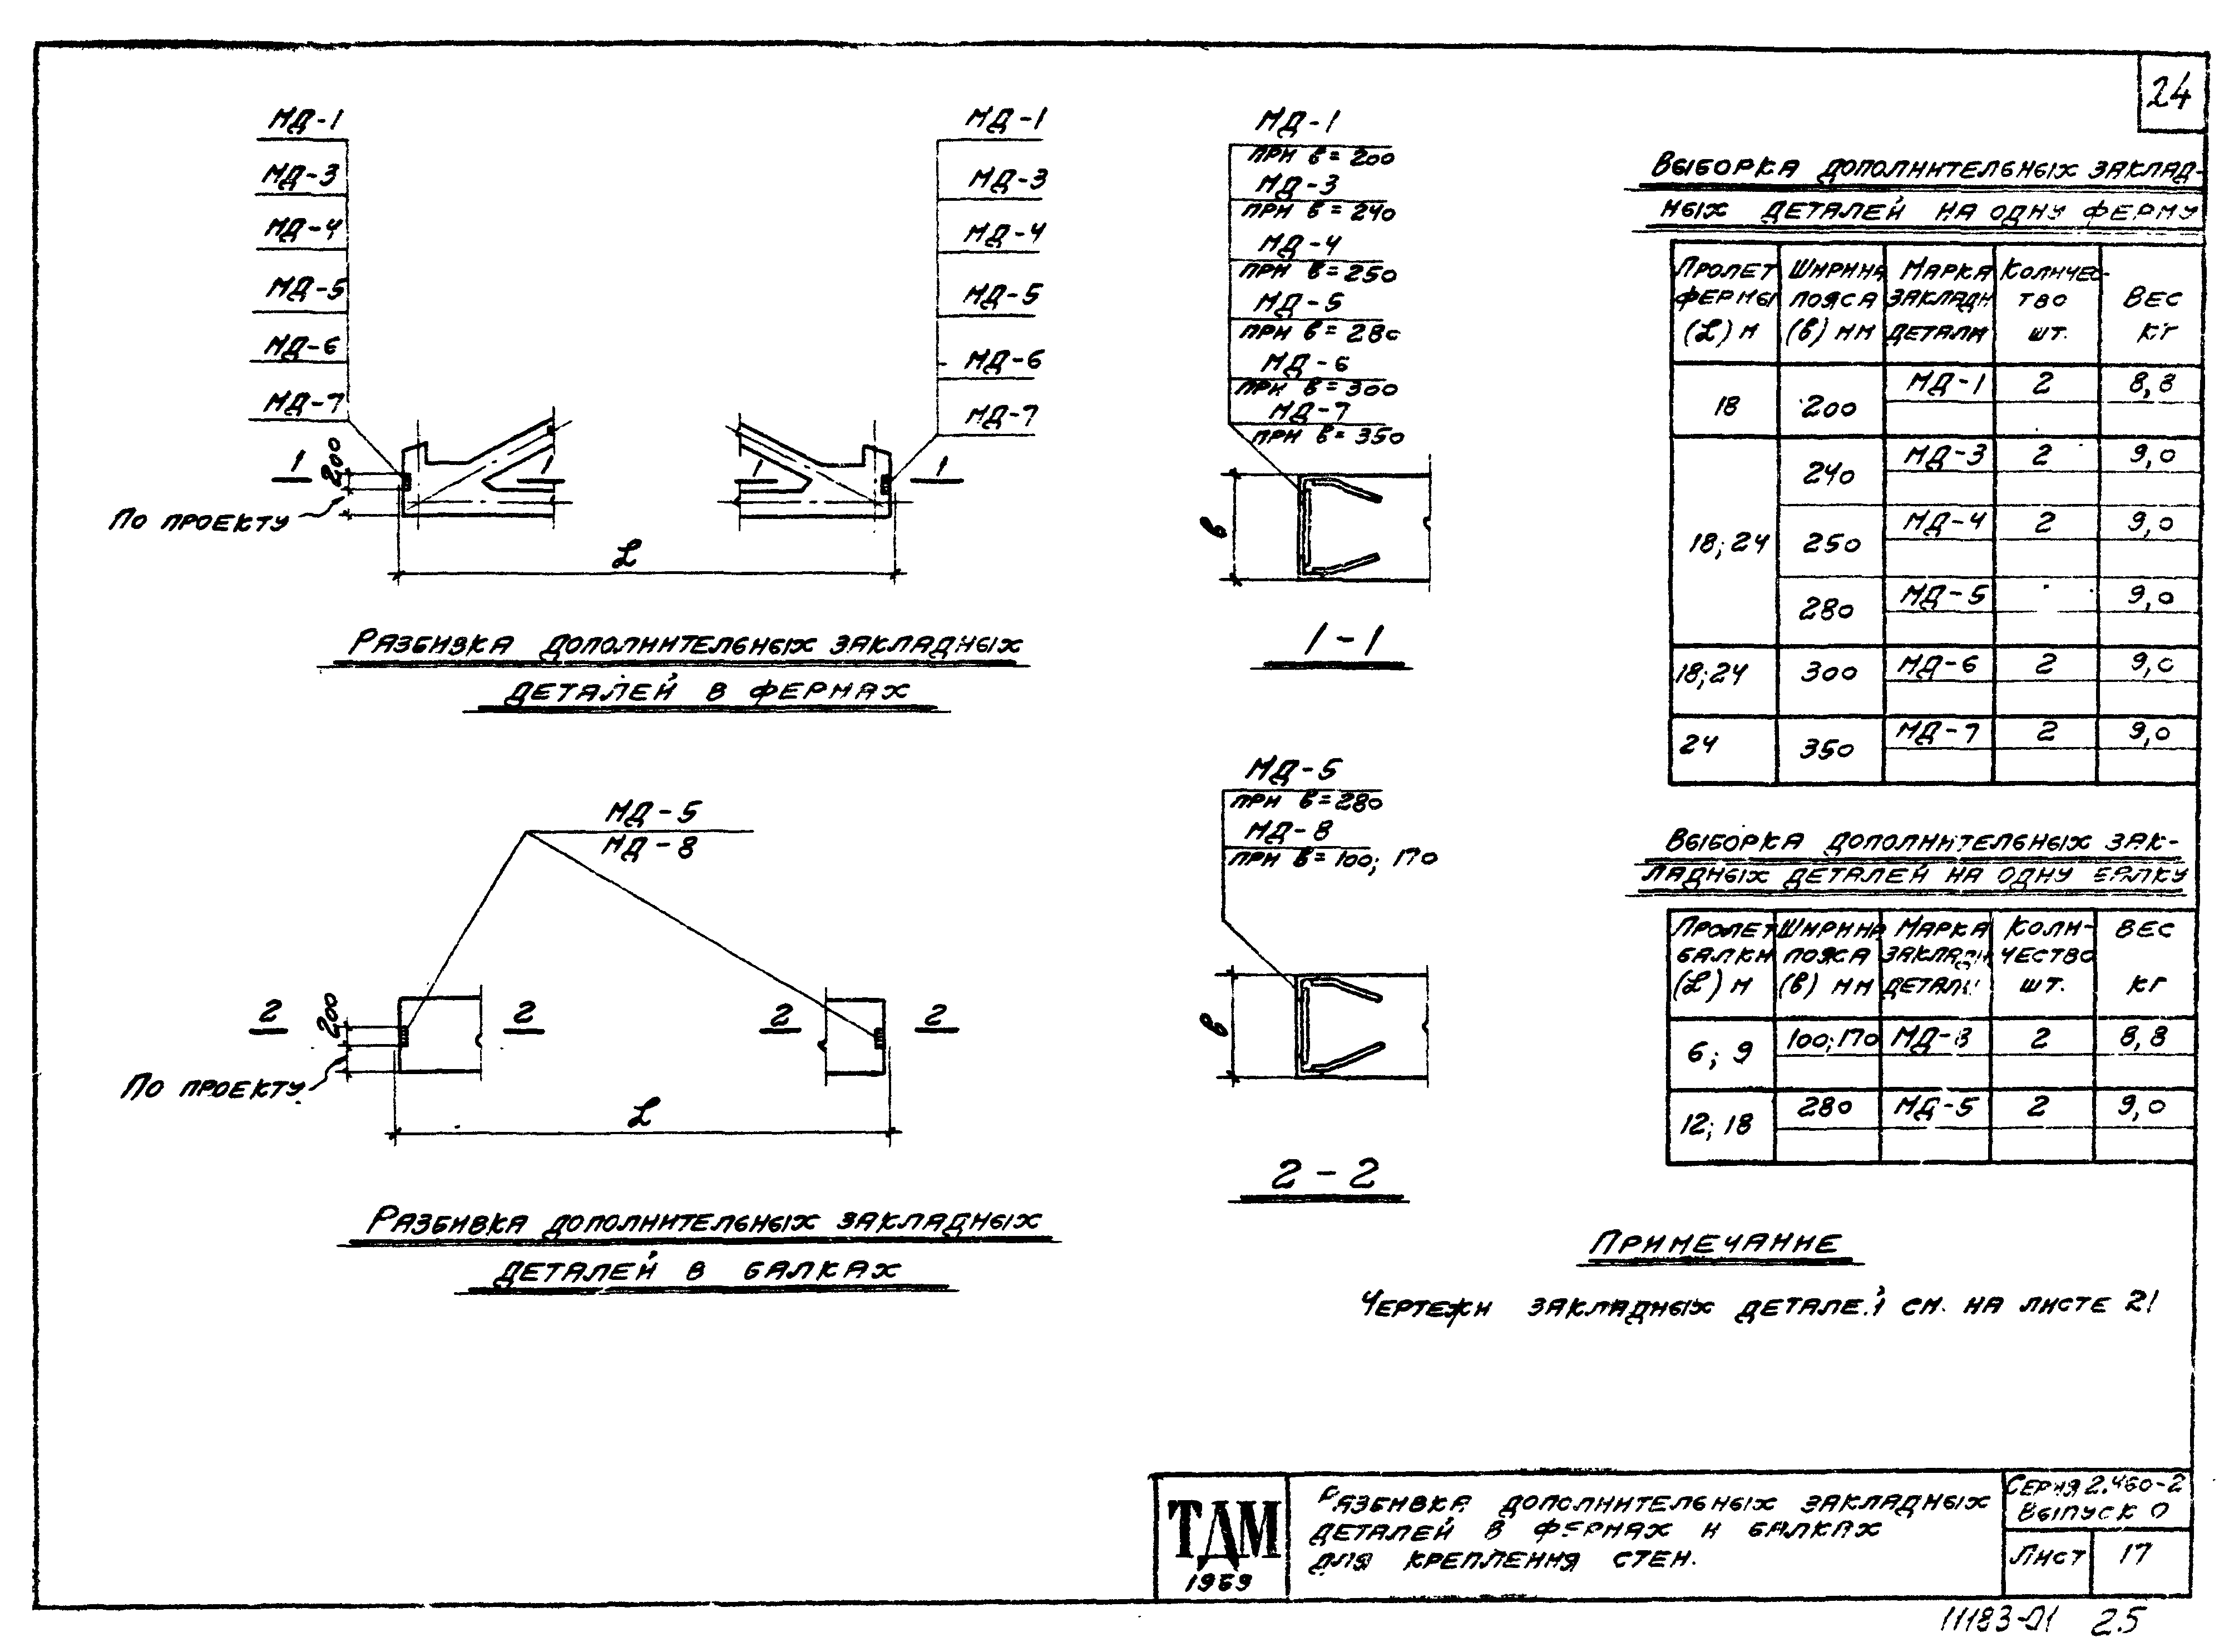 24
МД-1
МД-3
МД-4
МД-5
МД-6
МД-7
1
200
По проекту
1
МД-1
МД-3
МД-4
МД-5
МД-6
МД-7
1
1
L
Разбивка дополнительных закладных
деталей в фермах
МД-1
при в=200
МД-3
при в=240
МД-4
при в=250
МД-5
при в=280
МД-6
при в=300
МД-7
при в=350
в
1-1
МД-5
МД-8
2
200
2
2
2
По проекту
L
Разбивка дополнительных закладных
деталей в балках
МД-5
при в=280
МД-8
при в=100; 170
в
2-2
Выборка дополнительных заклад-
ных деталей на одну ферму
Пролет фермы (L) м | Ширина пояса (в) мм | Марка закладн детали | Количес-тво шт. | Вес кг
18 | 200 | МД-1 | 2 | 8,8
18; 24 | 240 | МД-3 | 2 | 9,0
250 | МД-4 | 2 | 9,0
280 | МД-5 | 9,0
18; 24 | 300 | МД-6 | 2 | 9,0
24 | 350 | МД-7 | 2 | 9,0
Выборка дополнительных зак-
ладных деталей на одну балку
Пролет балки (L) м | Ширина пояса (в) мм | Марка закладн детали | Коли-чество шт. | Вес кг
6; 9 | 100; 170 | МД-8 | 2 | 8,8
12; 18 | 280 | МД-5 | 2 | 9,0
Примечание
Чертежи закладных деталей см. на листе 21
ТДМ
1969
Разбивка дополнительных закладных
деталей в фермах и балках
для крепления стен.
Серия 2.460-2
Выпуск 0
Лист 17
11183-01 25